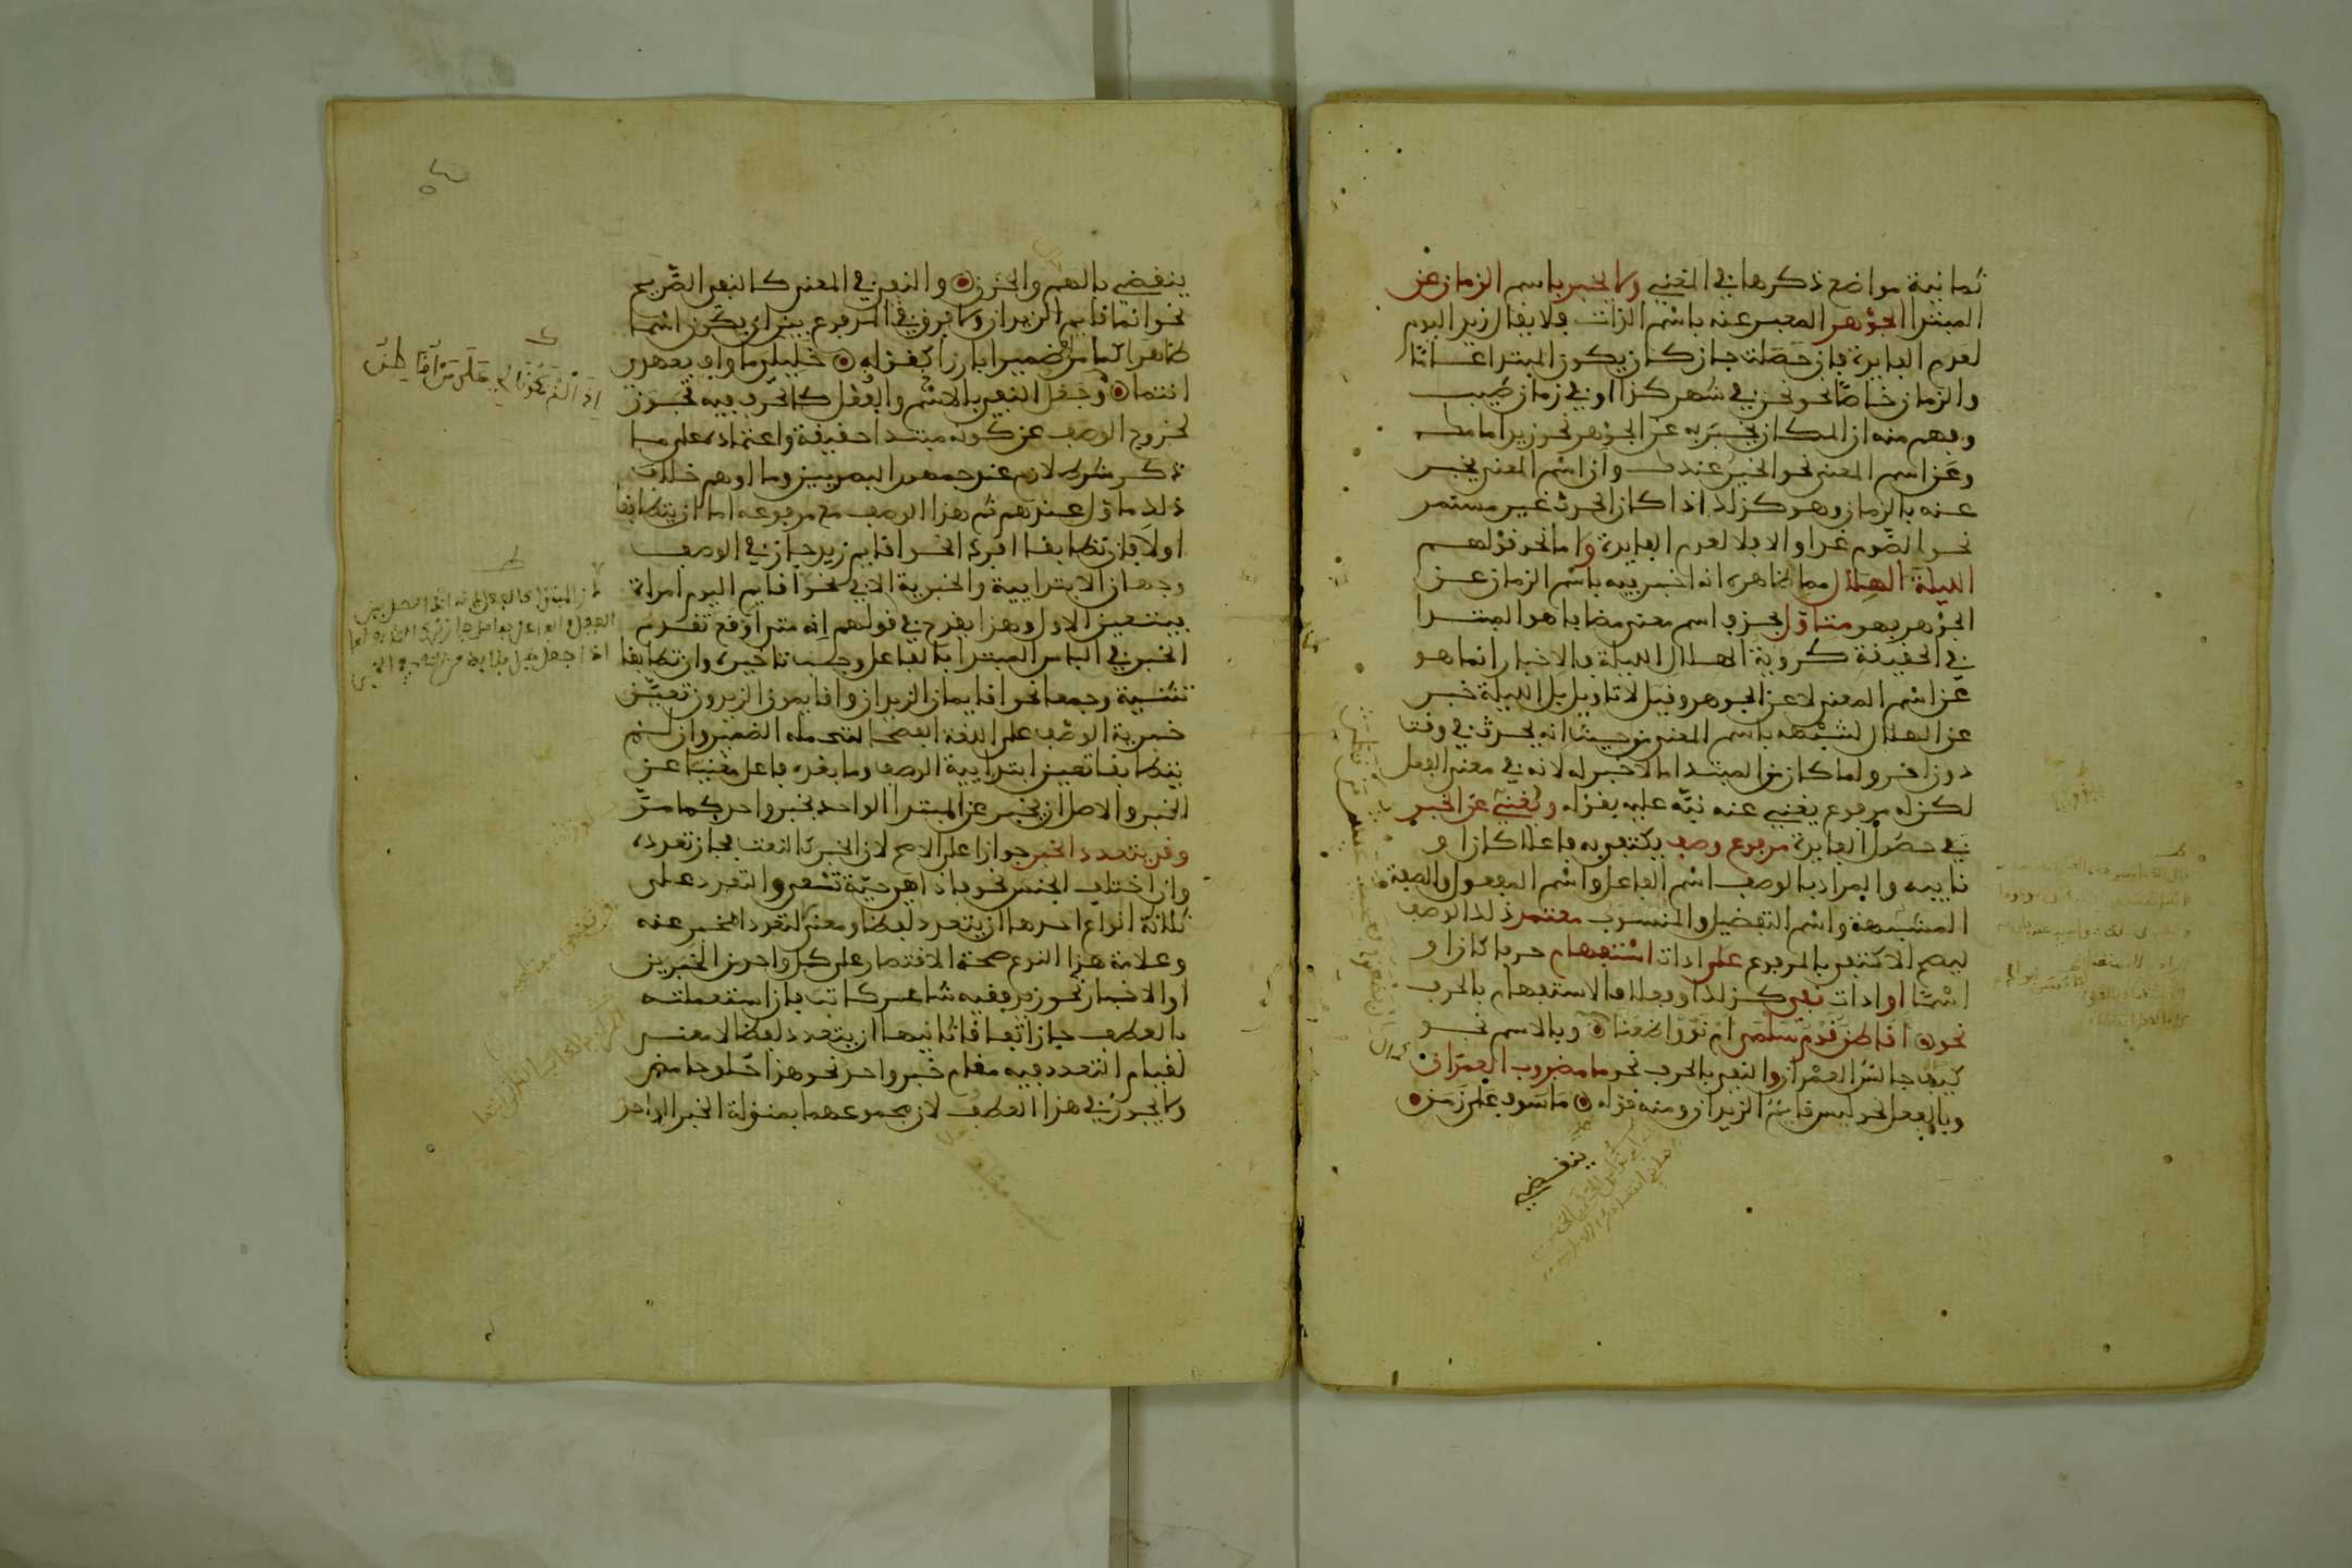 ثمانية مواضع ذكرها في المغني ولا يخبر باسم الزمان عن
المبتدا الجوهر المعبر عنه باسم الذات فلا يقال زيد اليوم
لعدم الفايدة فان حصلت جاز كان يكون المبتدا عاما
والزمان خاصا نحو نحن في شهر كذا او في زمان طيب
وفهم منه ان المكان يخبر به عن الجوهر نحو زيد امامك
وعن اسم المعنى نحو الخير عندك وان اسم المعنى يخبر
عنه بالزمان وهو كذلك اذا كان الحدث غير مستمر
نحو الصوم غدا والا فلا لعدم الفايدة واما نحو قولهم
الليلة الهلال مما ظاهره انه اخبر فيه باسم الزمان عن
الجوهر فهو متاول بحذف اسم معنى مضاف هو المبتدا
في الحقيقة كروية الهلال الليلة فالاخبار انما هو
عن اسم المعنى لا عن الجوهر وقيل لا تاويل بل الليلة خبر
عن الهلال لشبهه باسم المعنى من حيث انه يحدث في وقت
دون اخر ولما كان من المبتدا ما لا خبر له لانه في معنى الفعل
لكن له مرفوع يغني عنه نبه عليه بقوله ويغني عن الخبر
في حصول الفايدة مرفوع وصف يكتفي به فاعلا كان او
نايبه والمراد بالوصف اسم الفاعل واسم المفعول والصفة
المشبهة واسم التفضيل والمنسوب معتمد ذلك الوصف
ليصح الاكتفا بالمرفوع على ادات استفهام حرفا كان او
اسما او ادات نفي كذلك او فعلا فالاستفهام بالحرف
نحو اقاطن قوم سلمى ام نووا ظعنا وبالاسم نحو
كيف جالس العمران والنفي بالحرف نحو ما مضروب العمران
وبالفعل نحو ليس قايم الزيدان ومنه قوله ماسوف على زمن
ينقضي
ينقضي بالهم والحزن والنفي في المعنى كالنفي الصريح
نحو انما قايم الزيدان ولا فرق في المرفوع بين ان يكون اسما
ظاهرا كما مر او ضميرا بارزا كقوله خليلي ما واف بعهدي
انتما وجعل النفي بالاسم والفعل كالحرف فيه تجوز
لخروج الوصف عن كونه مبتدا حقيقة واعتماده على ما
ذكر شرط لازم عند جمهور البصريين وما اوهم خلاف
ذلك ماول عندهم ثم هذا الوصف مع مرفوعه اما ان يتطابقا
اولا فان تطابقا افرادا نحو اقايم زيد جاز في الوصف
وجهان الابتدايية والخبرية الا في نحو اقايم اليوم امراة
فيتعين الاول وهذا يقدح في قولهم انه متى اوقع تقديم
الخبر في الباس المبتدا بالفاعل وجب تاخيره وان تطابقا
تثنية وجمعا نحو اقايمان الزيدان واقايمون الزيدون تعين
خبرية الوصف على اللغة الفصحى لتحمله الضمير وان لم
يتطابقا تعين ابتدايية الوصف وما بعده فاعل مغنيا عن
الخبر والاصل ان يخبر عن المبتدا الواحد بخبر واحد كما مر
وقد يتعدد الخبر جوازا على الاصح لان الخبر كالنعت فجاز تعدده
وان اختلف الجنس نحو فاذا هي حية تسعى والتعدد على
ثلاثة انواع احدها ان يتعدد لفظا ومعنى لتعدد المخبر عنه
وعلامة هذا النوع صحة الاقتصار على كل واحد من الخبرين
او الاخبار نحو زيد فقيه شاعر كاتب فان استعملته
بالعطف جاز اتفاقا ثانيها ان يتعدد لفظا لا معنى
لقيام التعدد فيه مقام خبر واحد نحو هذا حلو حامض
ولا يجوز في هذا العطف لان مجموعهما بمنزلة الخبر الواحد